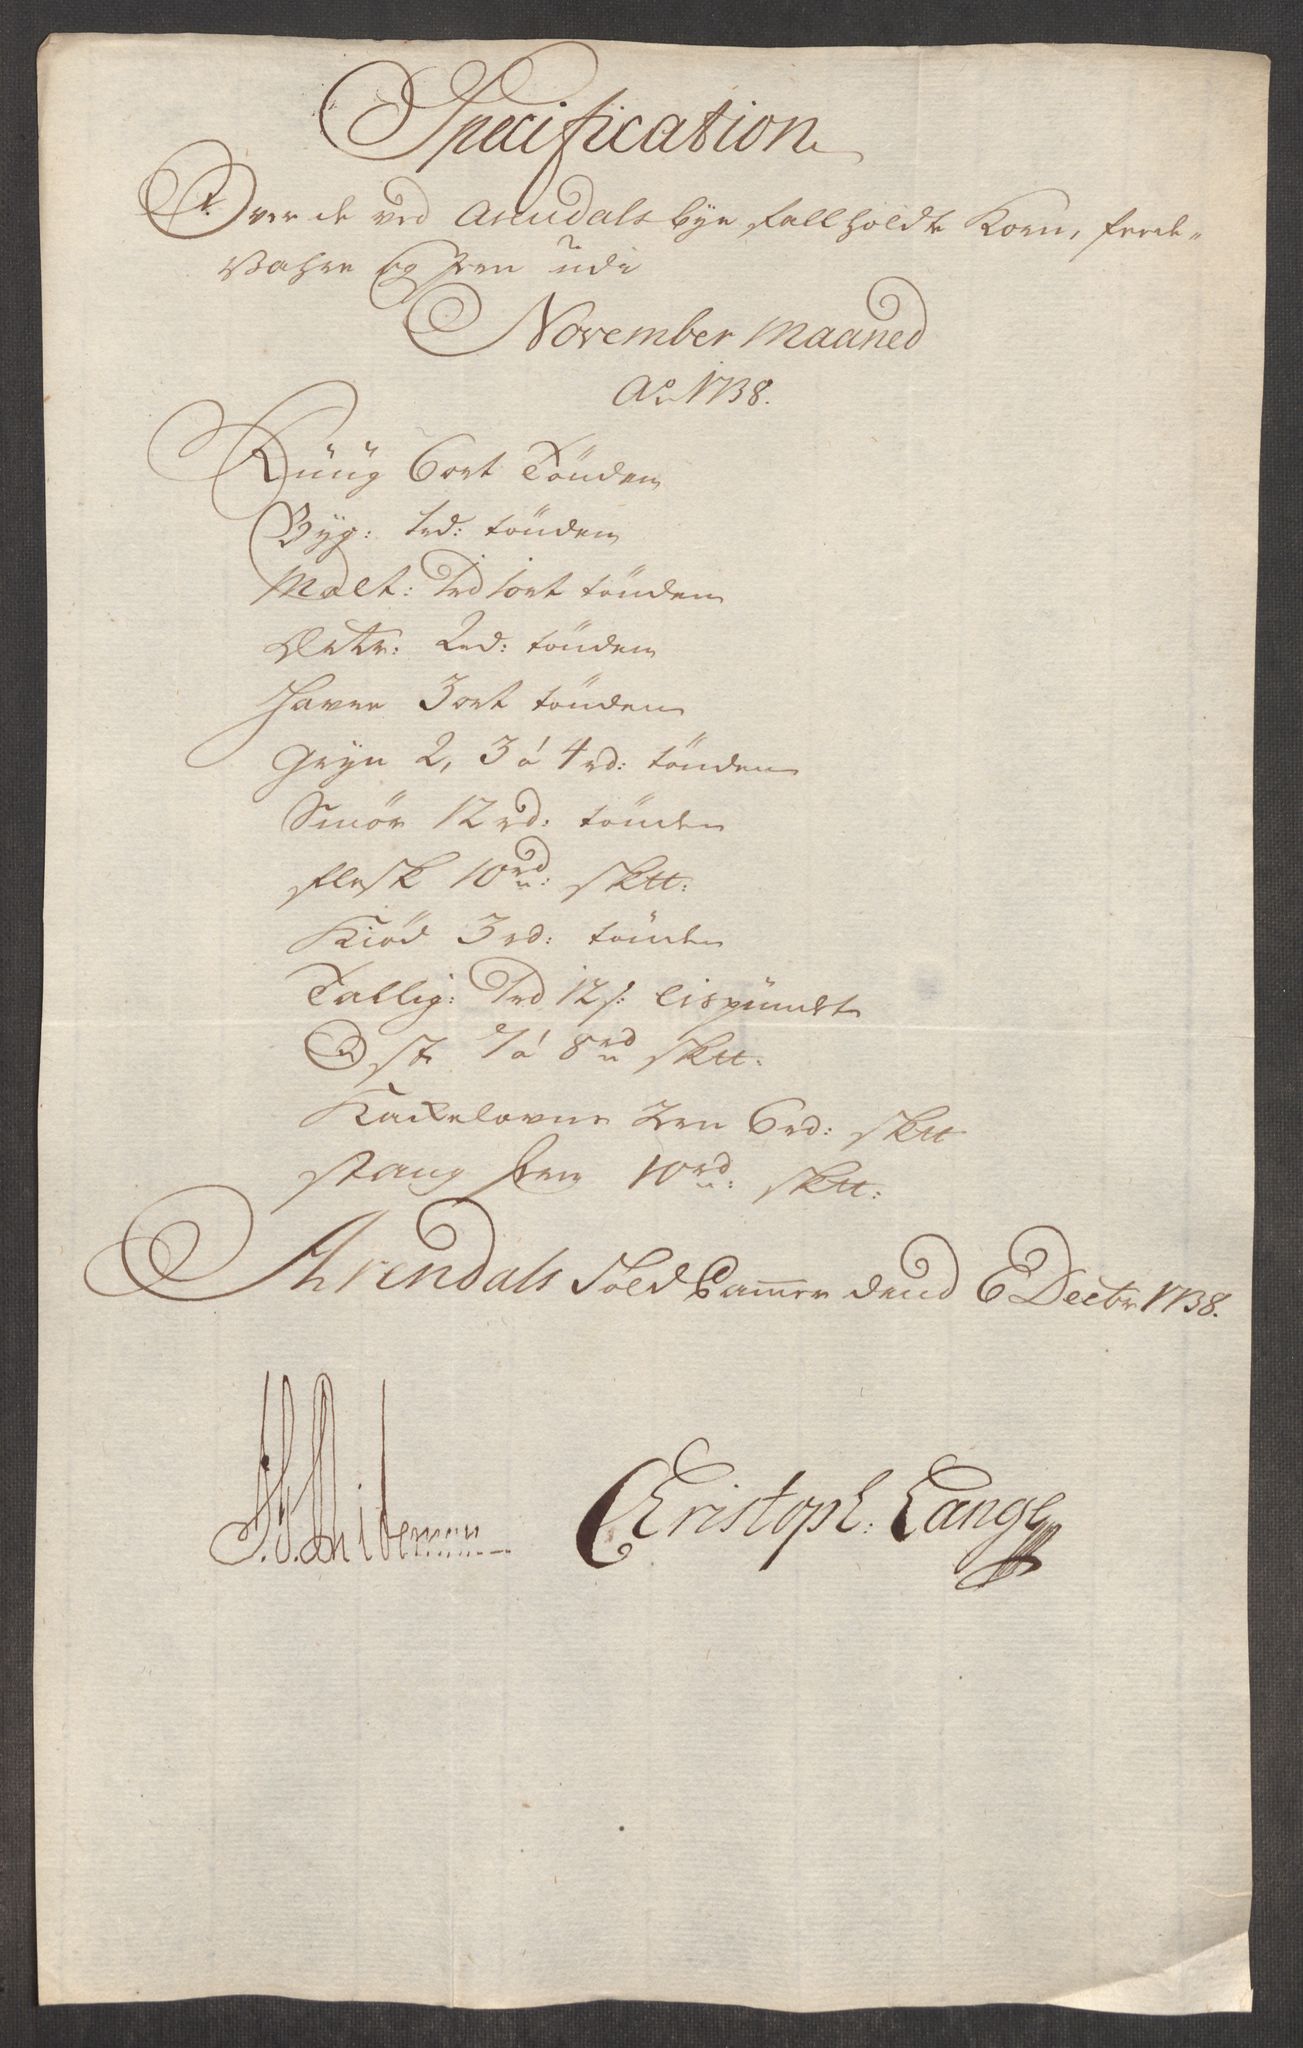 Specification
Over de ved Arendals bye fallholdte Korn, fede-
Vahre og Jern udi
November Maaned
Ao. 1738.
Rüüg 6 ort Tönden
Byg: 1 rd: tönden
Malt: 1 rd 1 ort tönden
Ærter: 2 rd: tönden
Haver 3 ort tönden
Gryn 2, 3 á 4 rd: tönden
Smör 12 rd: tönden
flesk 10 rd: sk℔:
Kiöd 3 rd: tönden
Tallig: 1 rd 12 s: lispundt
Ost 7 á 8 rd sk℔:
Kackelovne Jern 6 rd: sk℔
stang Jern 10 rd: sk℔:
Arendals Told Cammer dend 6 Decbr 1738.
Christoph: Lange